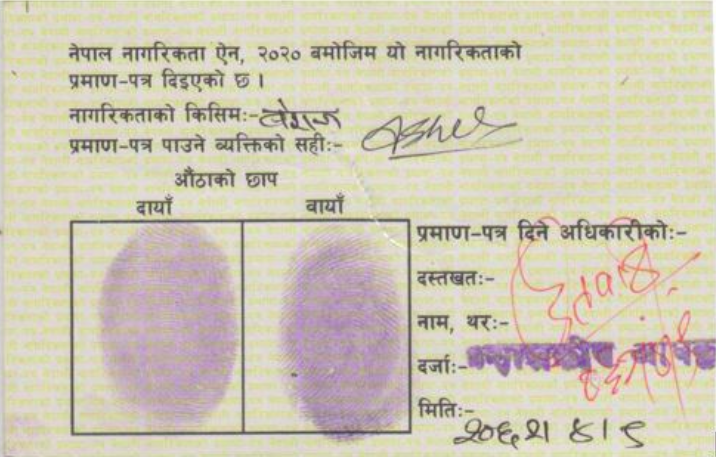 नेपाल नागरिकता ऐन, २०२० बमोजिम यो नागरिकताको
प्रमाण-पत्र दिइएको छ ।
नागरिकताको किसिमः- वंशज
प्रमाण-पत्र पाउने व्यक्तिको सहीः-
औंठाको छाप
दायाँ बायाँ
प्रमाण-पत्र दिने अधिकारीकोः-
दस्तखतः-
नाम, थरः-
दर्जाः-
मितिः-